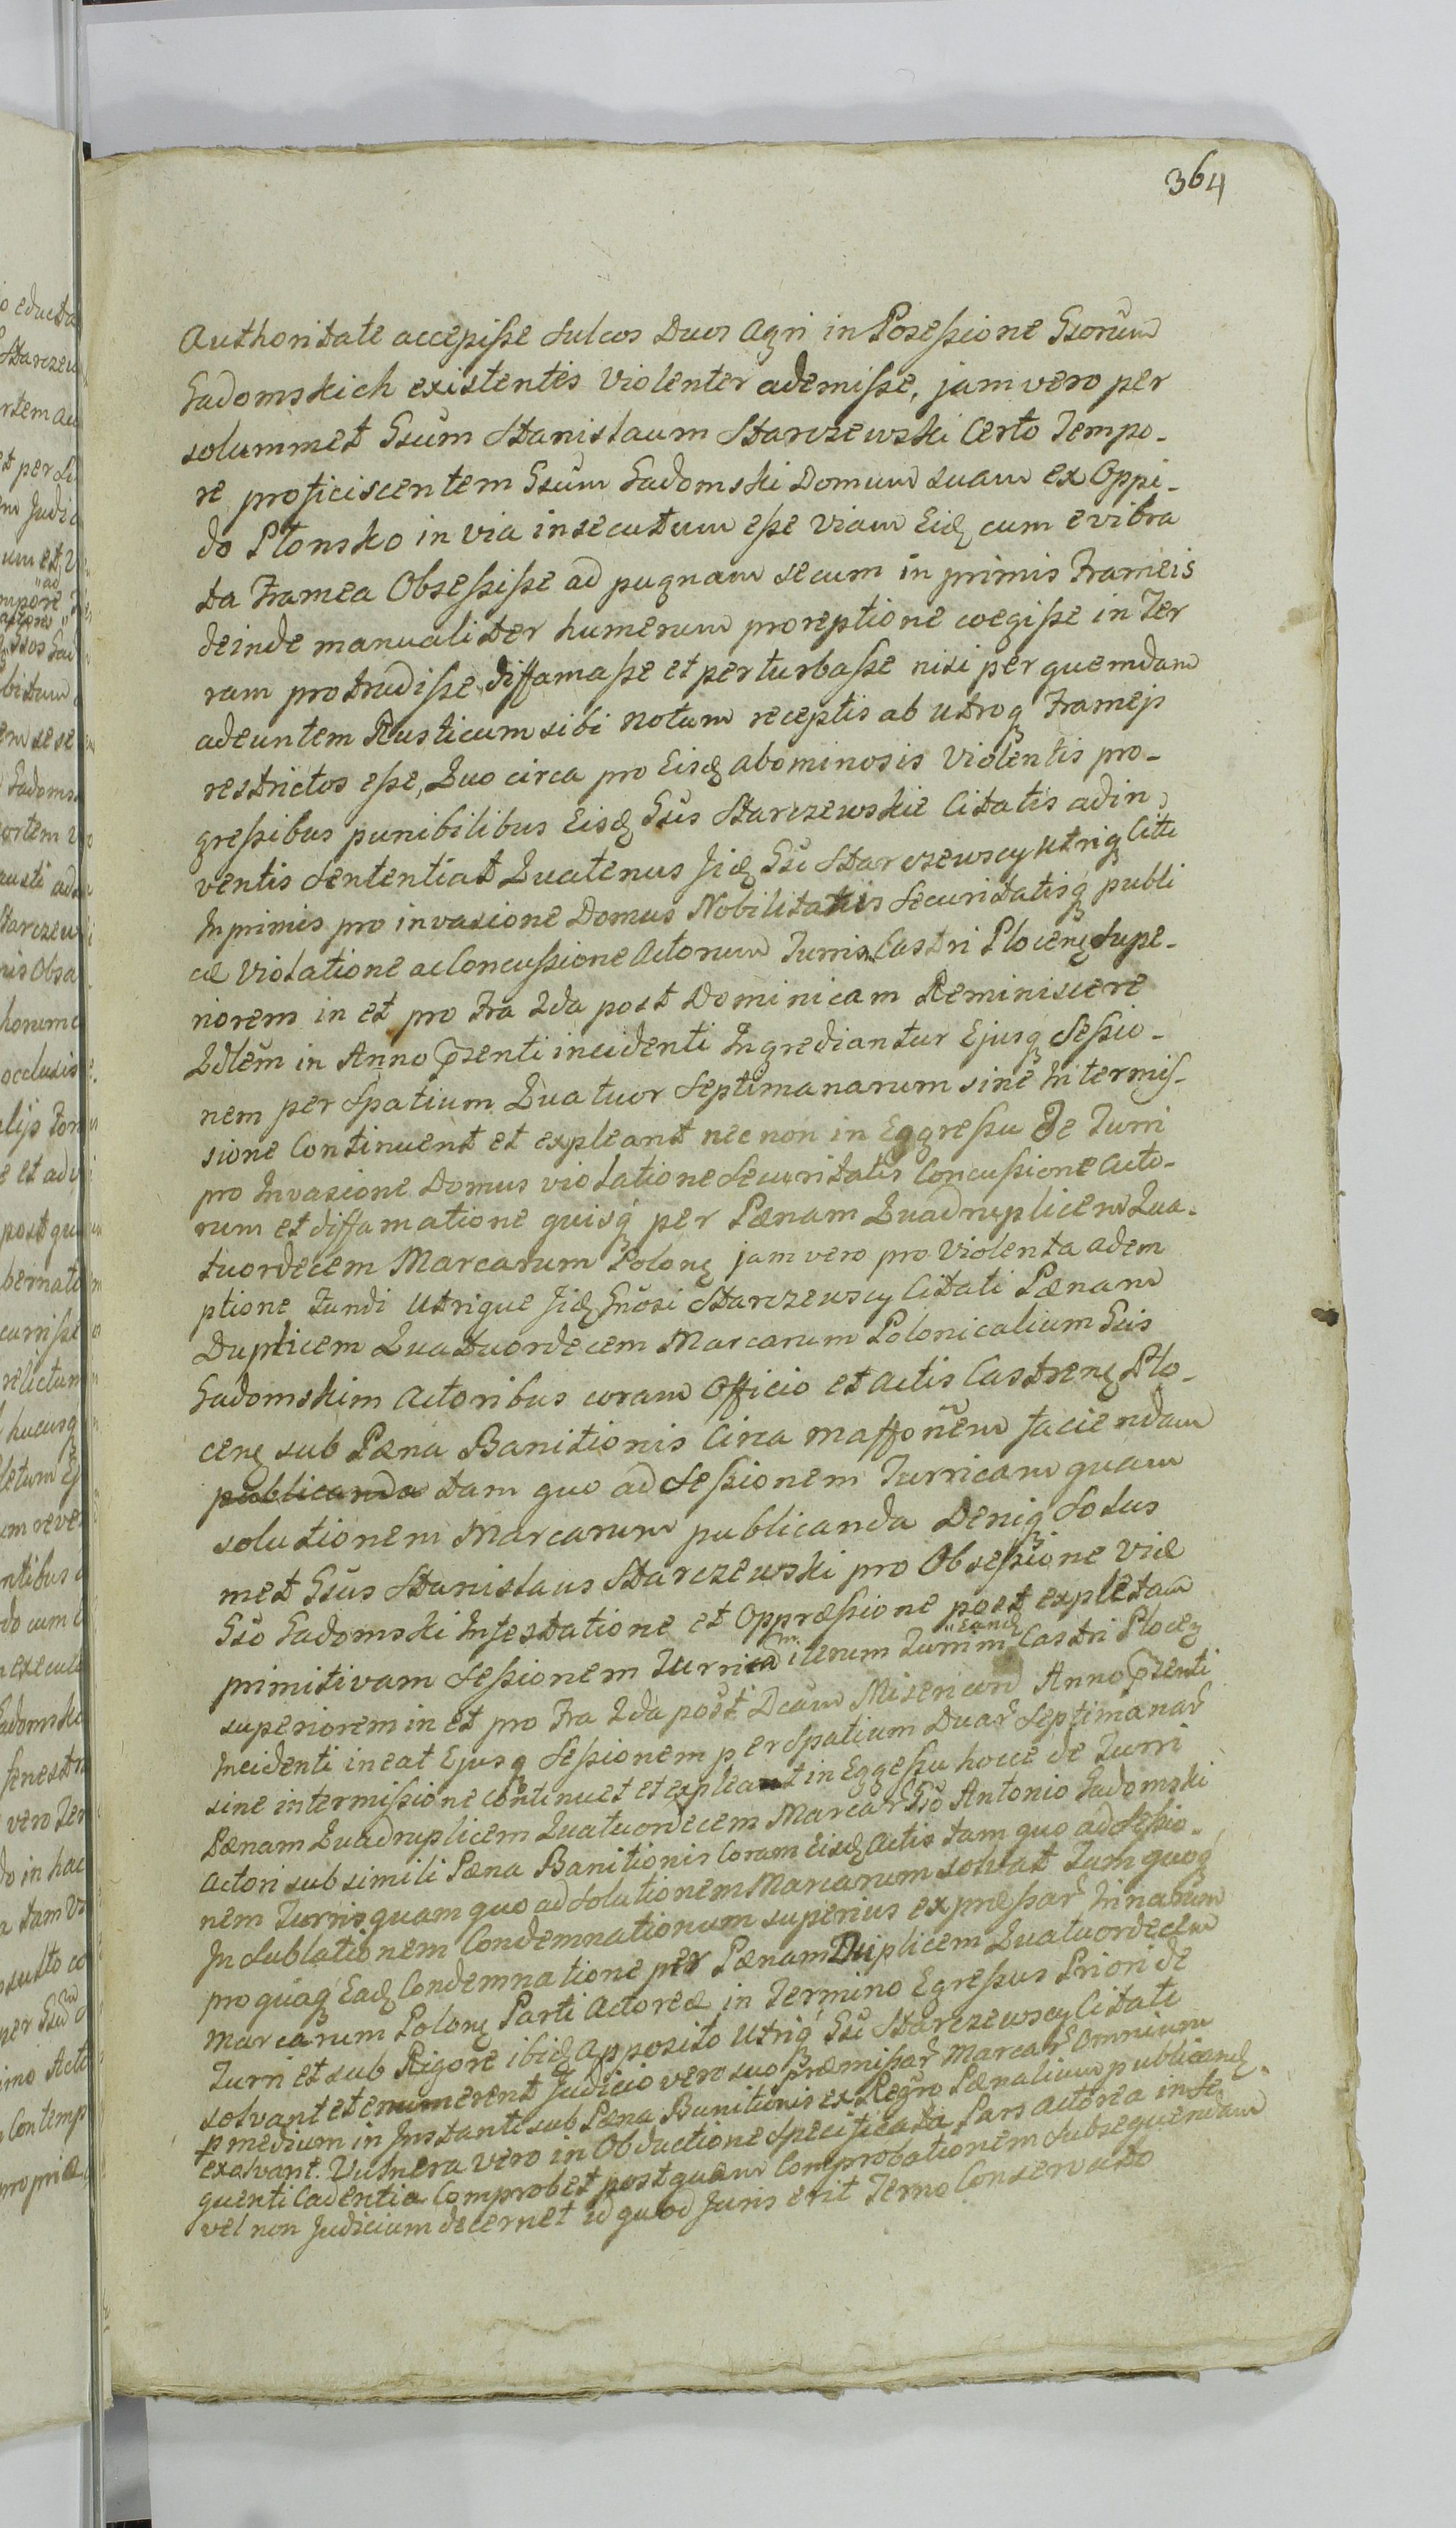 364
Authoritate accepisse Sulcos Duos Agri in Posessione Gsorum
Gadomskich existentes Violenter ademisse, jam vero per
solummet Gsum Stanislaum Starczewski Certo Tempo-
re proficiscentem Gsum Gadomski Domum suam ex Oppi-
do Plonsko in via insecutum esse Viam Eidꝫ cum evibra
ta Framea Obsessisse ad pugnam secum in primis Frameis
deinde manualiter humerum proreptione coegisse in Ter
ram protrudisse diffamasse et perturbasse nisi per quemdam
adeuntem Rusticum sibi notum receptis ab utroqꝫ Framejs
restrictos esse, Quo circa pro Eisdꝫ abominosis Violentis pro-
gressibus punibilibus Eisdꝫ Gsis Starczewskie Citatis adin
ventis Sententiat Quatenus Jidꝫ Gsi Starczewscy utriqꝫ Citi
Inprimis pro invasione Domus Nobilitatis Securitatisqꝫ publi
cæ Violatione ac Concussione Actorum Turrim Castri Plocenꝫ supe-
riorem in et pro Fra 2da post Dominicam Reminiscere
Qdlem in Anno p̃senti incidenti Ingrediantur Ejusqꝫ Sessio-
nem per Spatium Quatuor Septimanarum sine Intermis-
sione Continuent et expleant nec non in Eggressu De Turri
pro Invasione Domus violatione Securitatis Concussione Acto-
rum et diffamatione quisqꝫ per Pænam Quadruplicem Qua-
tuordecem Marcarum Polonꝫ jam vero pro Violenta adem
ptione Fundi Utrique Jidꝫ Gnosi Starczewscy Citati Pænam
Duplicem Quatuordecem Marcarum Polonicalium Gsis
Gadomskim Actoribus coram Officio et Actis Castrenꝫ Plo-
cenꝫ sub Pæna Banitionis Circa maffõnem faciendam
publicanda tam quo ad Sessionem Turricam quam
solutionem Marcarum publicanda Deniqꝫ Solus
met Gsus Stanislaus Starczewski pro Obsessione Viæ
Gso Gadomski Infestatione et Oppræssione post expletam
primitivam Sessionem Turricam iterum Turrim Eandꝫ Castri Plocenꝫ
superiorem in et pro Fra 2da post Dcam Misericord Anno p̃senti
Incidenti ineat Ejusqꝫ Sessionem per Spatium Duar Septimanar
sine intermissione continuet et expleat in Eggessu hocce de Turri
Pænam Quadruplicem Quatuordecem Marcar Gso Antonio Gadomski
Actori sub simili Pæna Banitionis Coram Eisdꝫ Actis tam quo ad Sessio-
nem Turris quam quo ad Solutionem Marcarum solvat Tum quoqꝫ
In Sublationem Condemnationum superius expressar Innarum
pro quaqꝫ Eadꝫ Condemnatione per Pænam Duplicem Quatuordecem
Marcarum Polonꝫ Parti Actoreæ in Termino Egressus Priori de
Turri et sub Rigore ibidꝫ apposito Utriqꝫ Gsi Starczewscy Citati
solvant et enumerent Judicio vero suo præmissar Marcar Omnium
p medium in Instanti sub Pæna Banitionis ex Regro Pænalium publicandꝫ
exolvant. Vulnera vero in Obductione Specificata Pars Actorea in Se
quenti Cadentia Comprobet post quam Comprobationem Subsequendam
vel non Judicium decernet id quod Juris erit Terno Conservato